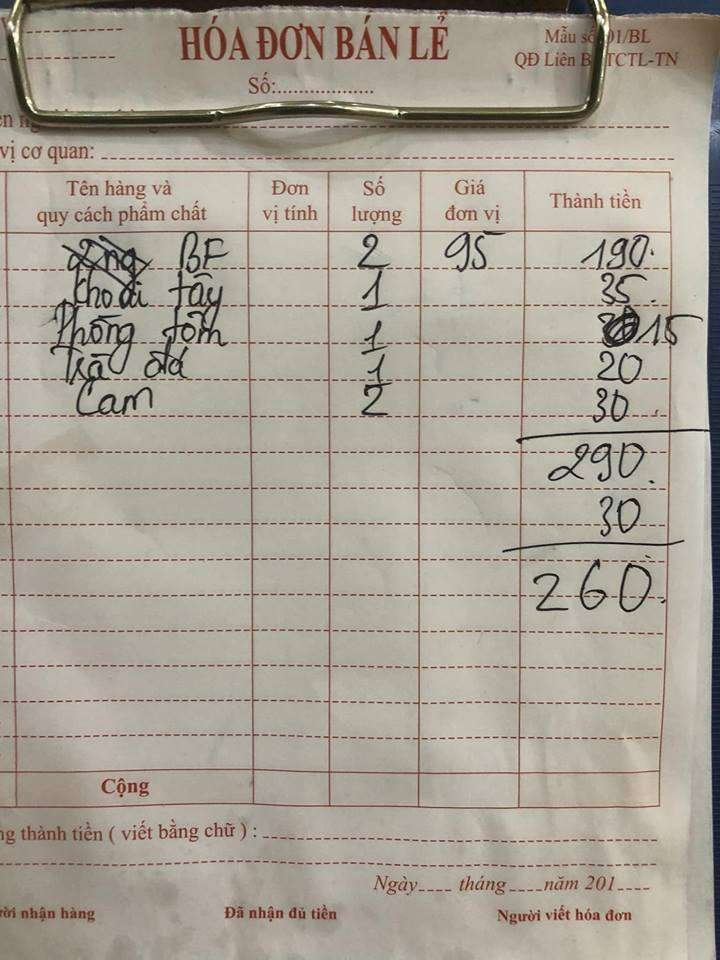 HÓA ĐƠN BÁN LẺ
Mẫu số 01/BL
QĐ Liên Bộ TCTL-TN
Số:...................
vị cơ quan:
Tên hàng và quy cách phẩm chất Đơn vị tính Số lượng Giá đơn vị Thành tiền
BF 2 95 190.
khoai tây 1 35
Phồng tôm 1 15
Trà đá 1 20
Cam 2 30
290.
30
260.
Cộng
ng thành tiền ( viết bằng chữ ) :
Ngày tháng năm 201
ười nhận hàng Đã nhận đủ tiền Người viết hóa đơn